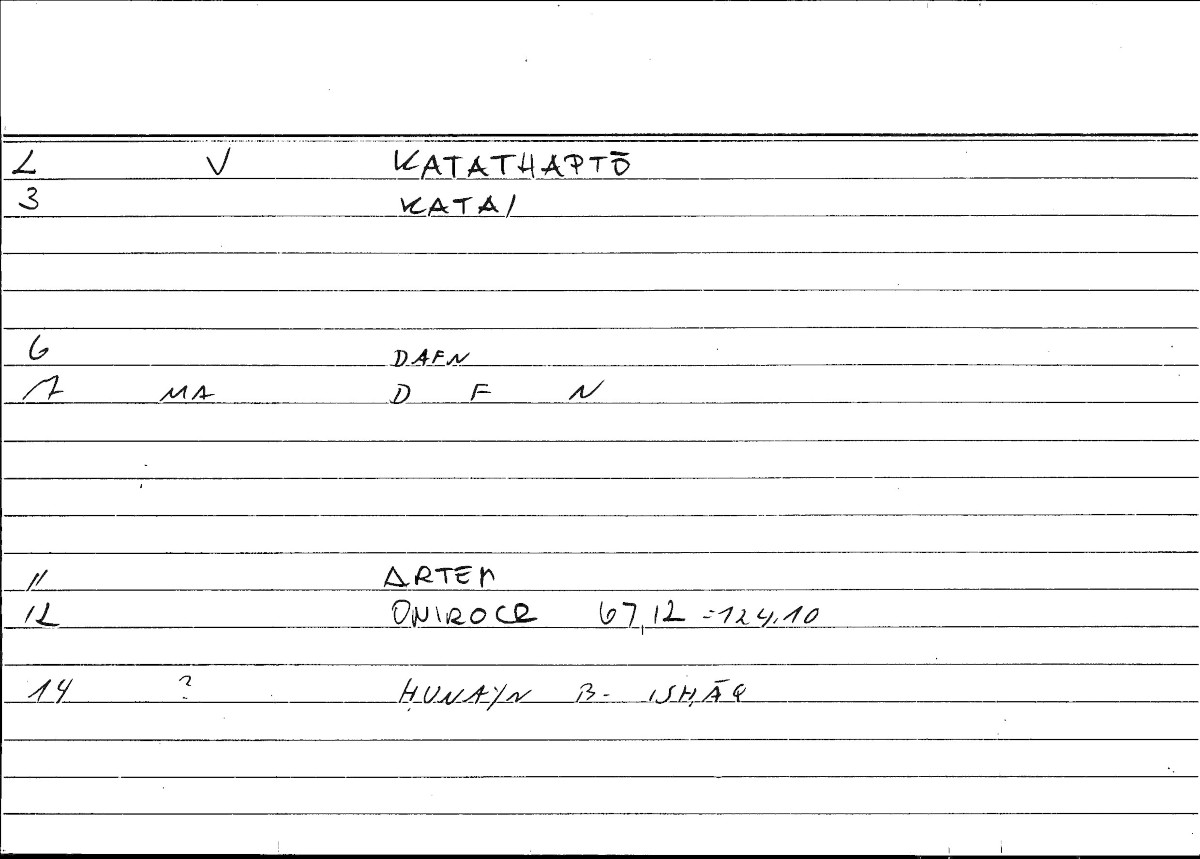 2 V KATATHAPTŌ
3 KATAI
6 DAFN
7 MA D F N
11 ARTEM
12 ONIROCR 67,12 = 124,10
14 ? ḤUNAYN B- ISḤĀQ